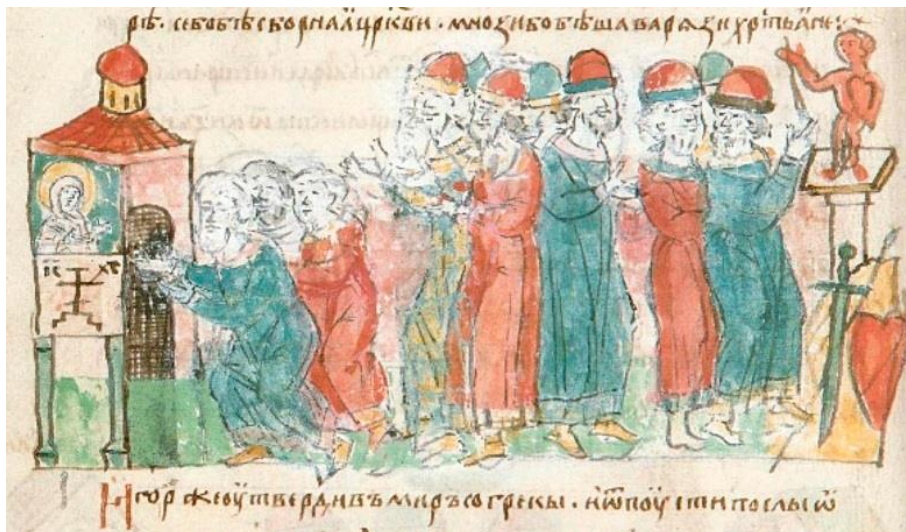 рѣ· се бо бѣ сборнаꙗ црк҃ви· мнози бо бѣша варѧзи хрⷭ҇тьꙗне:
ІС ХС
Игорь же оутвердивъ миръ со грекы· и ѿпоусти послы ѿ